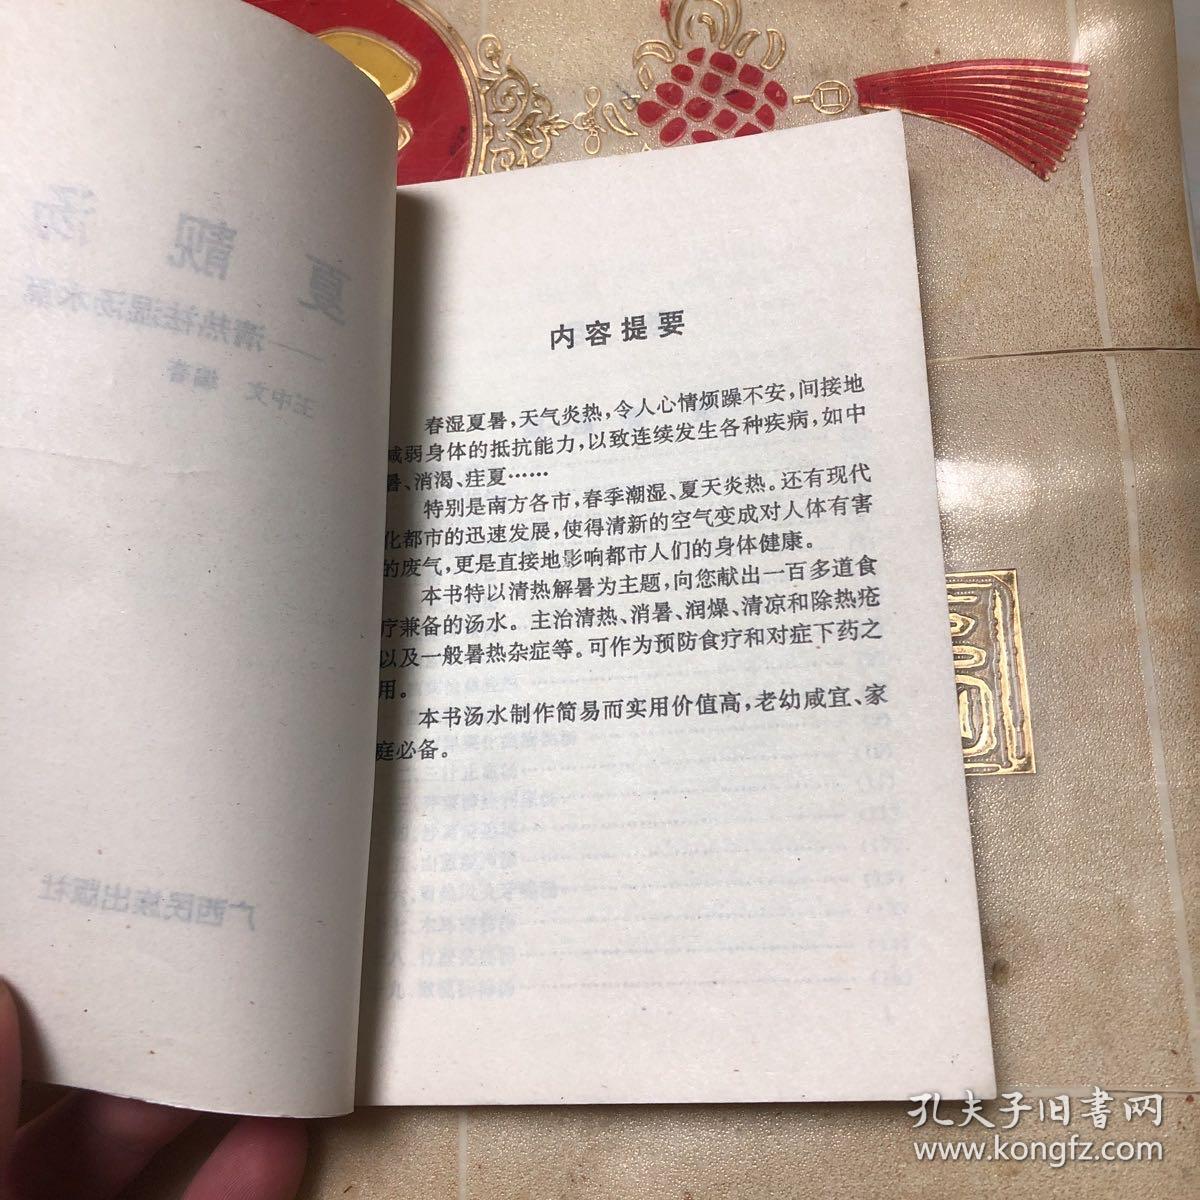 夏靓汤
——清热祛湿汤水
王中文 编著
广西民族出版社
内容提要
春湿夏暑，天气炎热，令人心情烦躁不安，间接地
减弱身体的抵抗能力，以致连续发生各种疾病，如中
暑、消渴、疰夏……
特别是南方各市，春季潮湿、夏天炎热。还有现代
化都市的迅速发展，使得清新的空气变成对人体有害
的废气，更是直接地影响都市人们的身体健康。
本书特以清热解暑为主题，向您献出一百多道食
疗兼备的汤水。主治清热、消暑、润燥、清凉和除热疮
以及一般暑热杂症等。可作为预防食疗和对症下药之
用。
本书汤水制作简易而实用价值高，老幼咸宜、家
庭必备。
孔夫子旧書网
www.kongfz.com